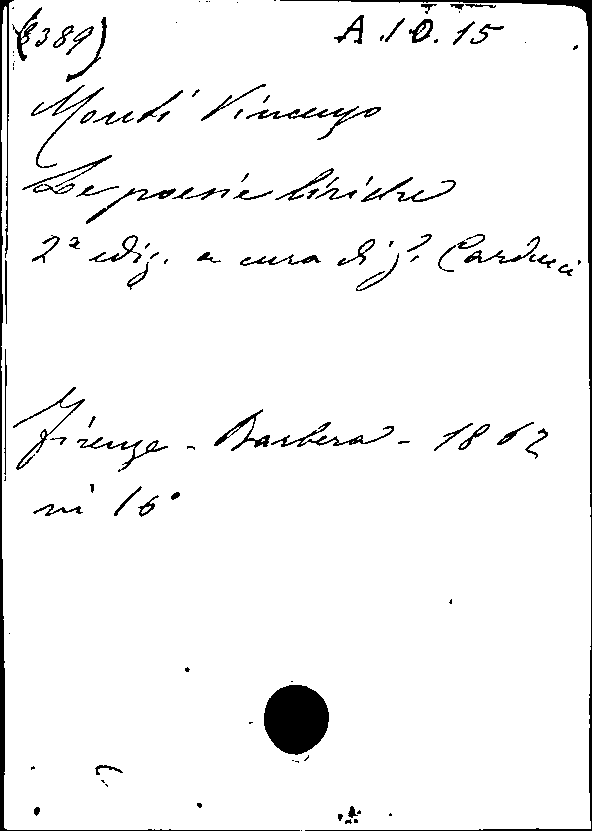 (8389) A.10.15
Monti Vincenzo
Le poesie liriche
2ª ediz. a cura di G. Carducci
Firenze - Barbera - 1862
in 16°